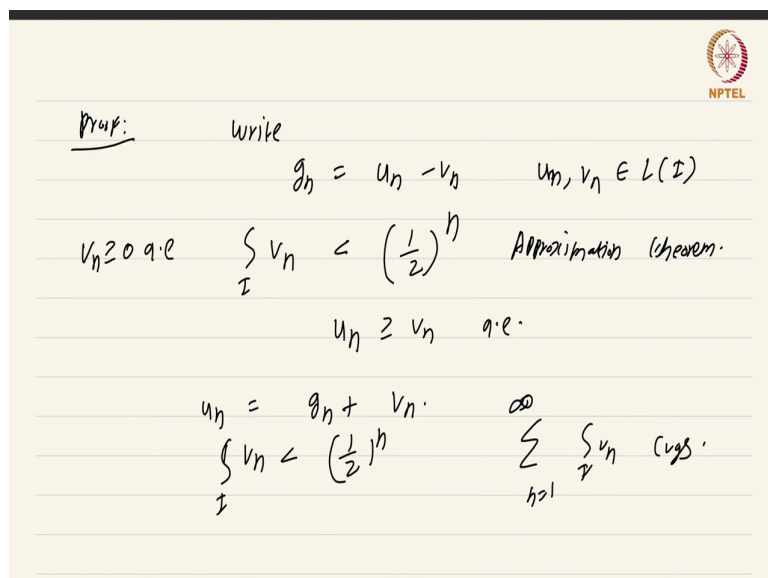 NPTEL
Proof: Write
gₙ = uₙ - vₙ uₙ, vₙ ∈ L(I)
vₙ ≥ 0 a.e ∫_I vₙ < (1/2)ⁿ Approximation theorem.
uₙ ≥ vₙ a.e.
uₙ = gₙ + vₙ.
∫_I vₙ < (1/2)ⁿ ∑_{n=1}^∞ ∫_I vₙ cvgs.